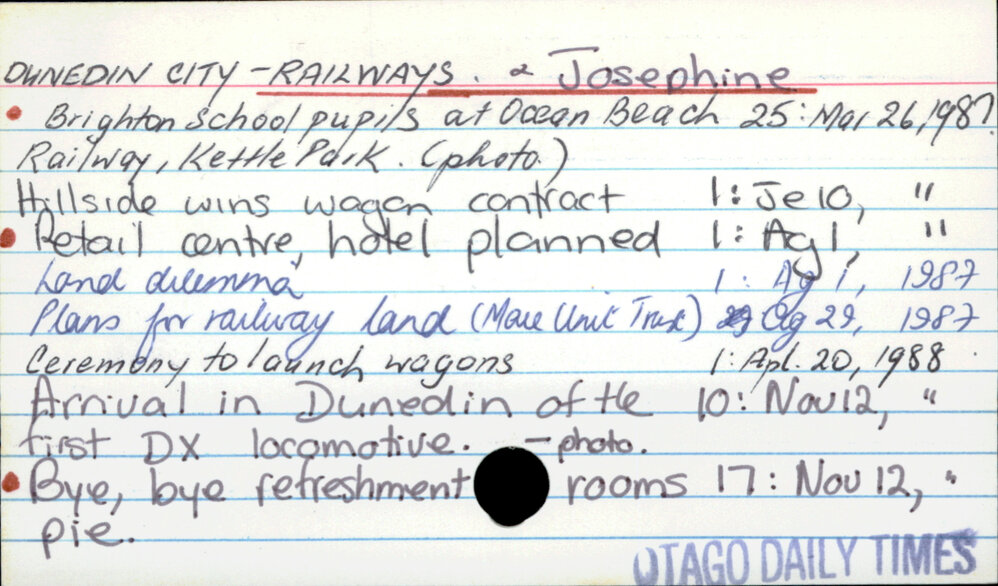 DUNEDIN CITY - RAILWAYS. & Josephine
• Brighton School pupils at Ocean Beach 25: Mar 26, 1987.
Railway, Kettle Park. (photo.)
Hillside wins wagon contract 1: Je 10, "
• Retail centre, hotel planned 1: Ag 1, "
Land dilemma 1: Ag 1, 1987
Plans for railway land (Mace Unit Trust) Ag 29, 1987
Ceremony to launch wagons 1: Apl. 20, 1988.
Arrival in Dunedin of the 10: Nov 12, "
first DX locomotive. - photo.
• Bye, bye refreshment rooms 17: Nov 12, "
pie.
OTAGO DAILY TIMES